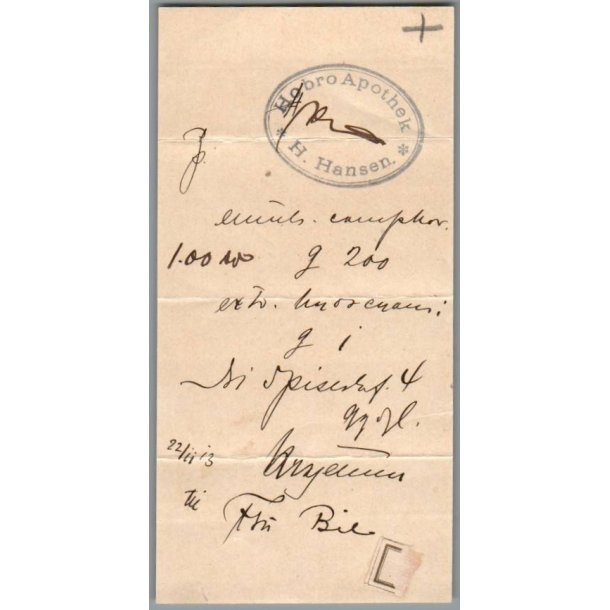 Hobro Apothek
* H. Hansen. *
emuls. camphor.
1.00 g 200
extr. hyoscyami
g i
spiseskef. 4
ggdgl.
22/11 13
til
Bie